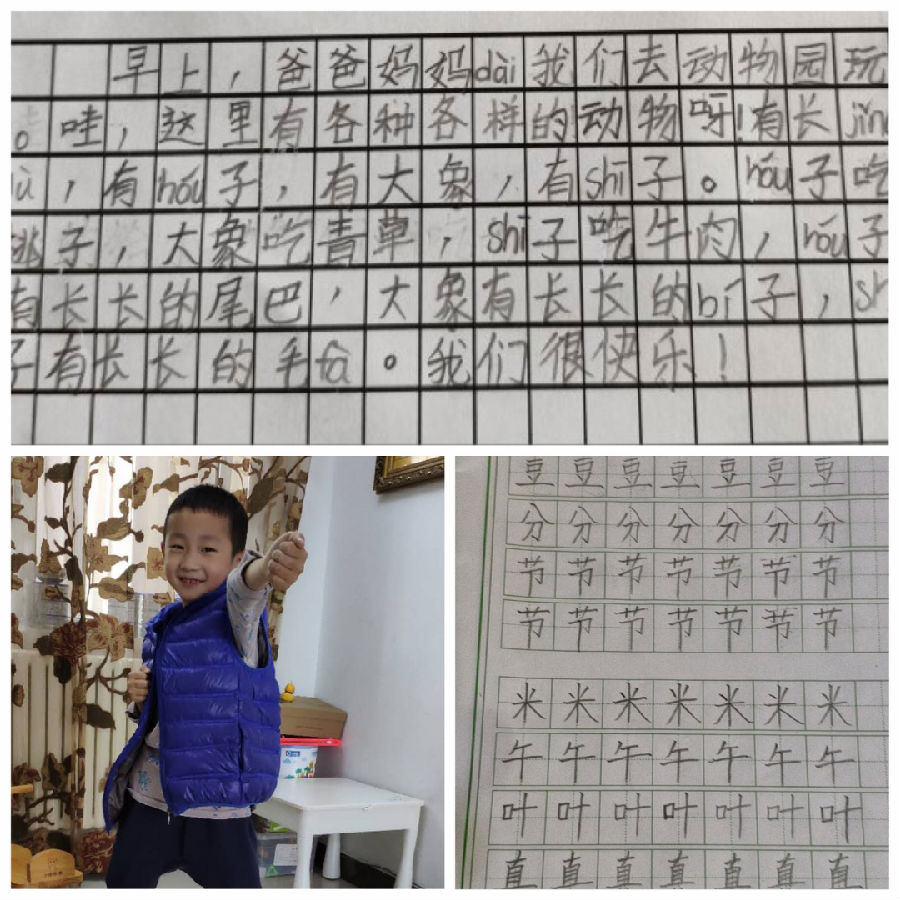 早上，爸爸妈妈dài我们去动物园玩
。哇，这里有各种各样的动物呀！有长jǐng
ù，有hóu子，有大象，有shī子。hóu子吃
桃子，大象吃青草，shī子吃牛肉，hóu子
有长长的尾巴，大象有长长的bí子，sh
子有长长的毛fà。我们很快乐！
豆豆豆豆豆豆豆
分分分分分分分
节节节节节节节
节节节节节节节
米米米米米米米
午午午午午午午
叶叶叶叶叶叶叶
直直直直直直直